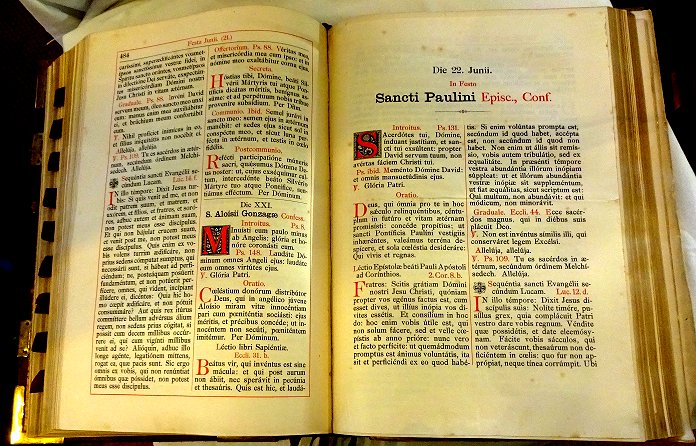 484
Festa Junii. (21.)
caríssimi, superædificántes vosmet-
ípsos sanctíssimæ vestræ fídei, in
Spíritu sancto orántes, vosmetípsos
in dilectióne Dei serváte, exspectán-
tes misericórdiam Dómini nostri
Jesu Christi in vitam ætérnam.
Graduale. Ps. 88. Invéni David
servum meum, óleo sancto meo unxi
eum: manus enim mea auxiliábitur
ei, et bráchium meum confortábit
eum.
℣. Nihil profíciet inimícus in eo,
et fílius iniquitátis non nocébit ei.
Allelúja, allelúja.
℣. Ps. 109. Tu es sacérdos in ætér-
num, secúndum órdinem Melchí-
sedech. Allelúja.
Sequéntia sancti Evangélii se-
cúndum Lucam. Luc. 14 f.
In illo témpore: Dixit Jesus tur-
bis: Si quis venit ad me, et non
odit patrem suum, et matrem, et
uxórem, et fílios, et fratres, et soró-
res, adhuc autem et ánimam suam,
non potest meus esse discípulus.
Et qui non bájulat crucem suam,
et venit post me, non potest meus
esse discípulus. Quis enim ex vo-
bis volens turrim ædificáre, non
prius sedens cómputat sumptus, qui
necessárii sunt, si hábeat ad perfi-
ciéndum; ne, posteáquam posúerit
fundaméntum, et non potúerit per-
fícere, omnes, qui vident, incípiant
illúdere ei, dicéntes: Quia hic ho-
mo cœpit ædificáre, et non pótuit
consummáre? Aut quis rex itúrus
commíttere bellum advérsus álium
regem, non sedens prius cógitat, si
possit cum decem míllibus occúr-
rere ei, qui cum vigínti míllibus
venit ad se? Alióquin, adhuc illo
longe agénte, legatiónem mittens,
rogat ea, quæ pacis sunt. Sic ergo
omnis ex vobis, qui non renúntiat
ómnibus quæ póssidet, non potest
meus esse discípulus.
Offertorium. Ps. 88. Véritas mea,
et misericórdia mea cum ipso: et in
nómine meo exaltábitur cornu ejus.
Secreta.
Hóstias tibi, Dómine, beáti Sil-
vérii Mártyris tui atque Pon-
tíficis dicátas méritis, benígnus as-
súme: et ad perpétuum nobis tríbue
proveníre subsídium. Per Dóm.
Communio. Ibid. Semel jurávi in
sancto meo: semen ejus in ætérnum
manébit: et sedes ejus sicut sol in
conspéctu meo, et sicut luna per-
fécta in ætérnum, et testis in cœlo
fidélis.
Postcommunio.
Refécti participatióne múneris
sacri, quǽsumus Dómine De-
us noster: ut, cujus exséquimur cul-
tum, intercedénte beáto Silvério
Mártyre tuo atque Pontífice, sen-
tiámus efféctum. Per Dóminum.
Die XXI.
S. Aloísii Gonzagæ Confess.
Introitus. Ps. 8.
Minuísti eum paulo minus
ab Angelis: glória et ho-
nóre coronásti eum.
Ps. 148. Laudáte Dó-
minum omnes Angeli ejus: laudáte
eum omnes virtútes ejus.
℣. Glória Patri.
Oratio.
Cœléstium donórum distribútor
Deus, qui in angélico júvene
Aloísio miram vitæ innocéntiam
pari cum pœniténtia sociásti: ejus
méritis, et précibus concéde; ut in-
nocéntem non secúti, pœniténtem
imitémur. Per Dóminum.
Léctio libri Sapiéntiæ.
Eccli. 31. b.
Beátus vir, qui invéntus est sine
mácula: et qui post aurum
non ábiit, nec sperávit in pecúnia
et thesáuris. Quis est hic, et laudá-
Die 22. Junii.
In Festo
Sancti Paulini Episc., Conf.
Introitus. Ps. 131.
Sacerdótes tui, Dómine,
índuant justítiam, et san-
cti tui exsúltent: propter
David servum tuum, non
avértas fáciem Christi tui.
Ps. ibid. Meménto Dómine David:
et omnis mansuetúdinis ejus.
℣. Glória Patri.
Oratio.
Deus, qui ómnia pro te in hoc
sǽculo relinquéntibus, cén-
plum in futúro et vitam ætérnam
promisísti: concéde propítius; ut
sancti Pontíficis Paulíni vestígiis
inhæréntes, valeámus terréna de-
spícere, et sola cœléstia desideráre:
Qui vivis et regnas.
Léctio Epístolæ beáti Pauli Apóstoli
ad Corínthios. 2. Cor. 8. b.
Fratres: Scitis grátiam Dómini
nostri Jesu Christi, quóniam
propter vos egénus factus est, cum
esset dives, ut illíus inópia vos dí-
vites essétis. Et consílium in hoc
do: hoc enim vobis útile est, qui
non solum fácere, sed et velle cœ-
pístis ab anno prióre: nunc vero
et facto perfícite: ut quemádmodum
promptus est ánimus voluntátis, ita
sit et perficiéndi ex eo quod habé-
tis. Si enim volúntas prompta est,
secúndum id quod habet, accépta
est, non secúndum id quod non
habet. Non enim ut áliis sit remís-
sio, vobis autem tribulátio, sed ex
æqualitáte. In præsénti témpore
vestra abundántia illórum inópiam
súppleat: ut et illórum abundántia
vestræ inópiæ sit suppleméntum,
ut fiat æquálitas, sicut scriptum est:
Qui multum, non abundávit: et qui
módicum, non minorávit.
Graduale. Eccli. 44. Ecce sacér-
dos magnus, qui in diébus suis
plácuit Deo.
℣. Non est invéntus símilis illi, qui
conserváret legem Excélsi.
Allelúja, allelúja.
℣. Ps. 109. Tu es sacérdos in æ-
térnum, secúndum órdinem Melchí-
sedech. Allelúja.
Sequéntia sancti Evangélii se-
cúndum Lucam. Luc. 12. d.
In illo témpore: Dixit Jesus di-
scípulis suis: Nolíte timére, pu-
síllus grex, quia complácuit Patri
vestro dare vobis regnum. Véndite
quæ possidétis, et date eleemósy-
nam. Fácite vobis sácculos, qui
non veteráscunt, thesáurum non de-
ficiéntem in cœlis: quo fur non ap-
própiat, neque tínea corrúmpit. Ubi